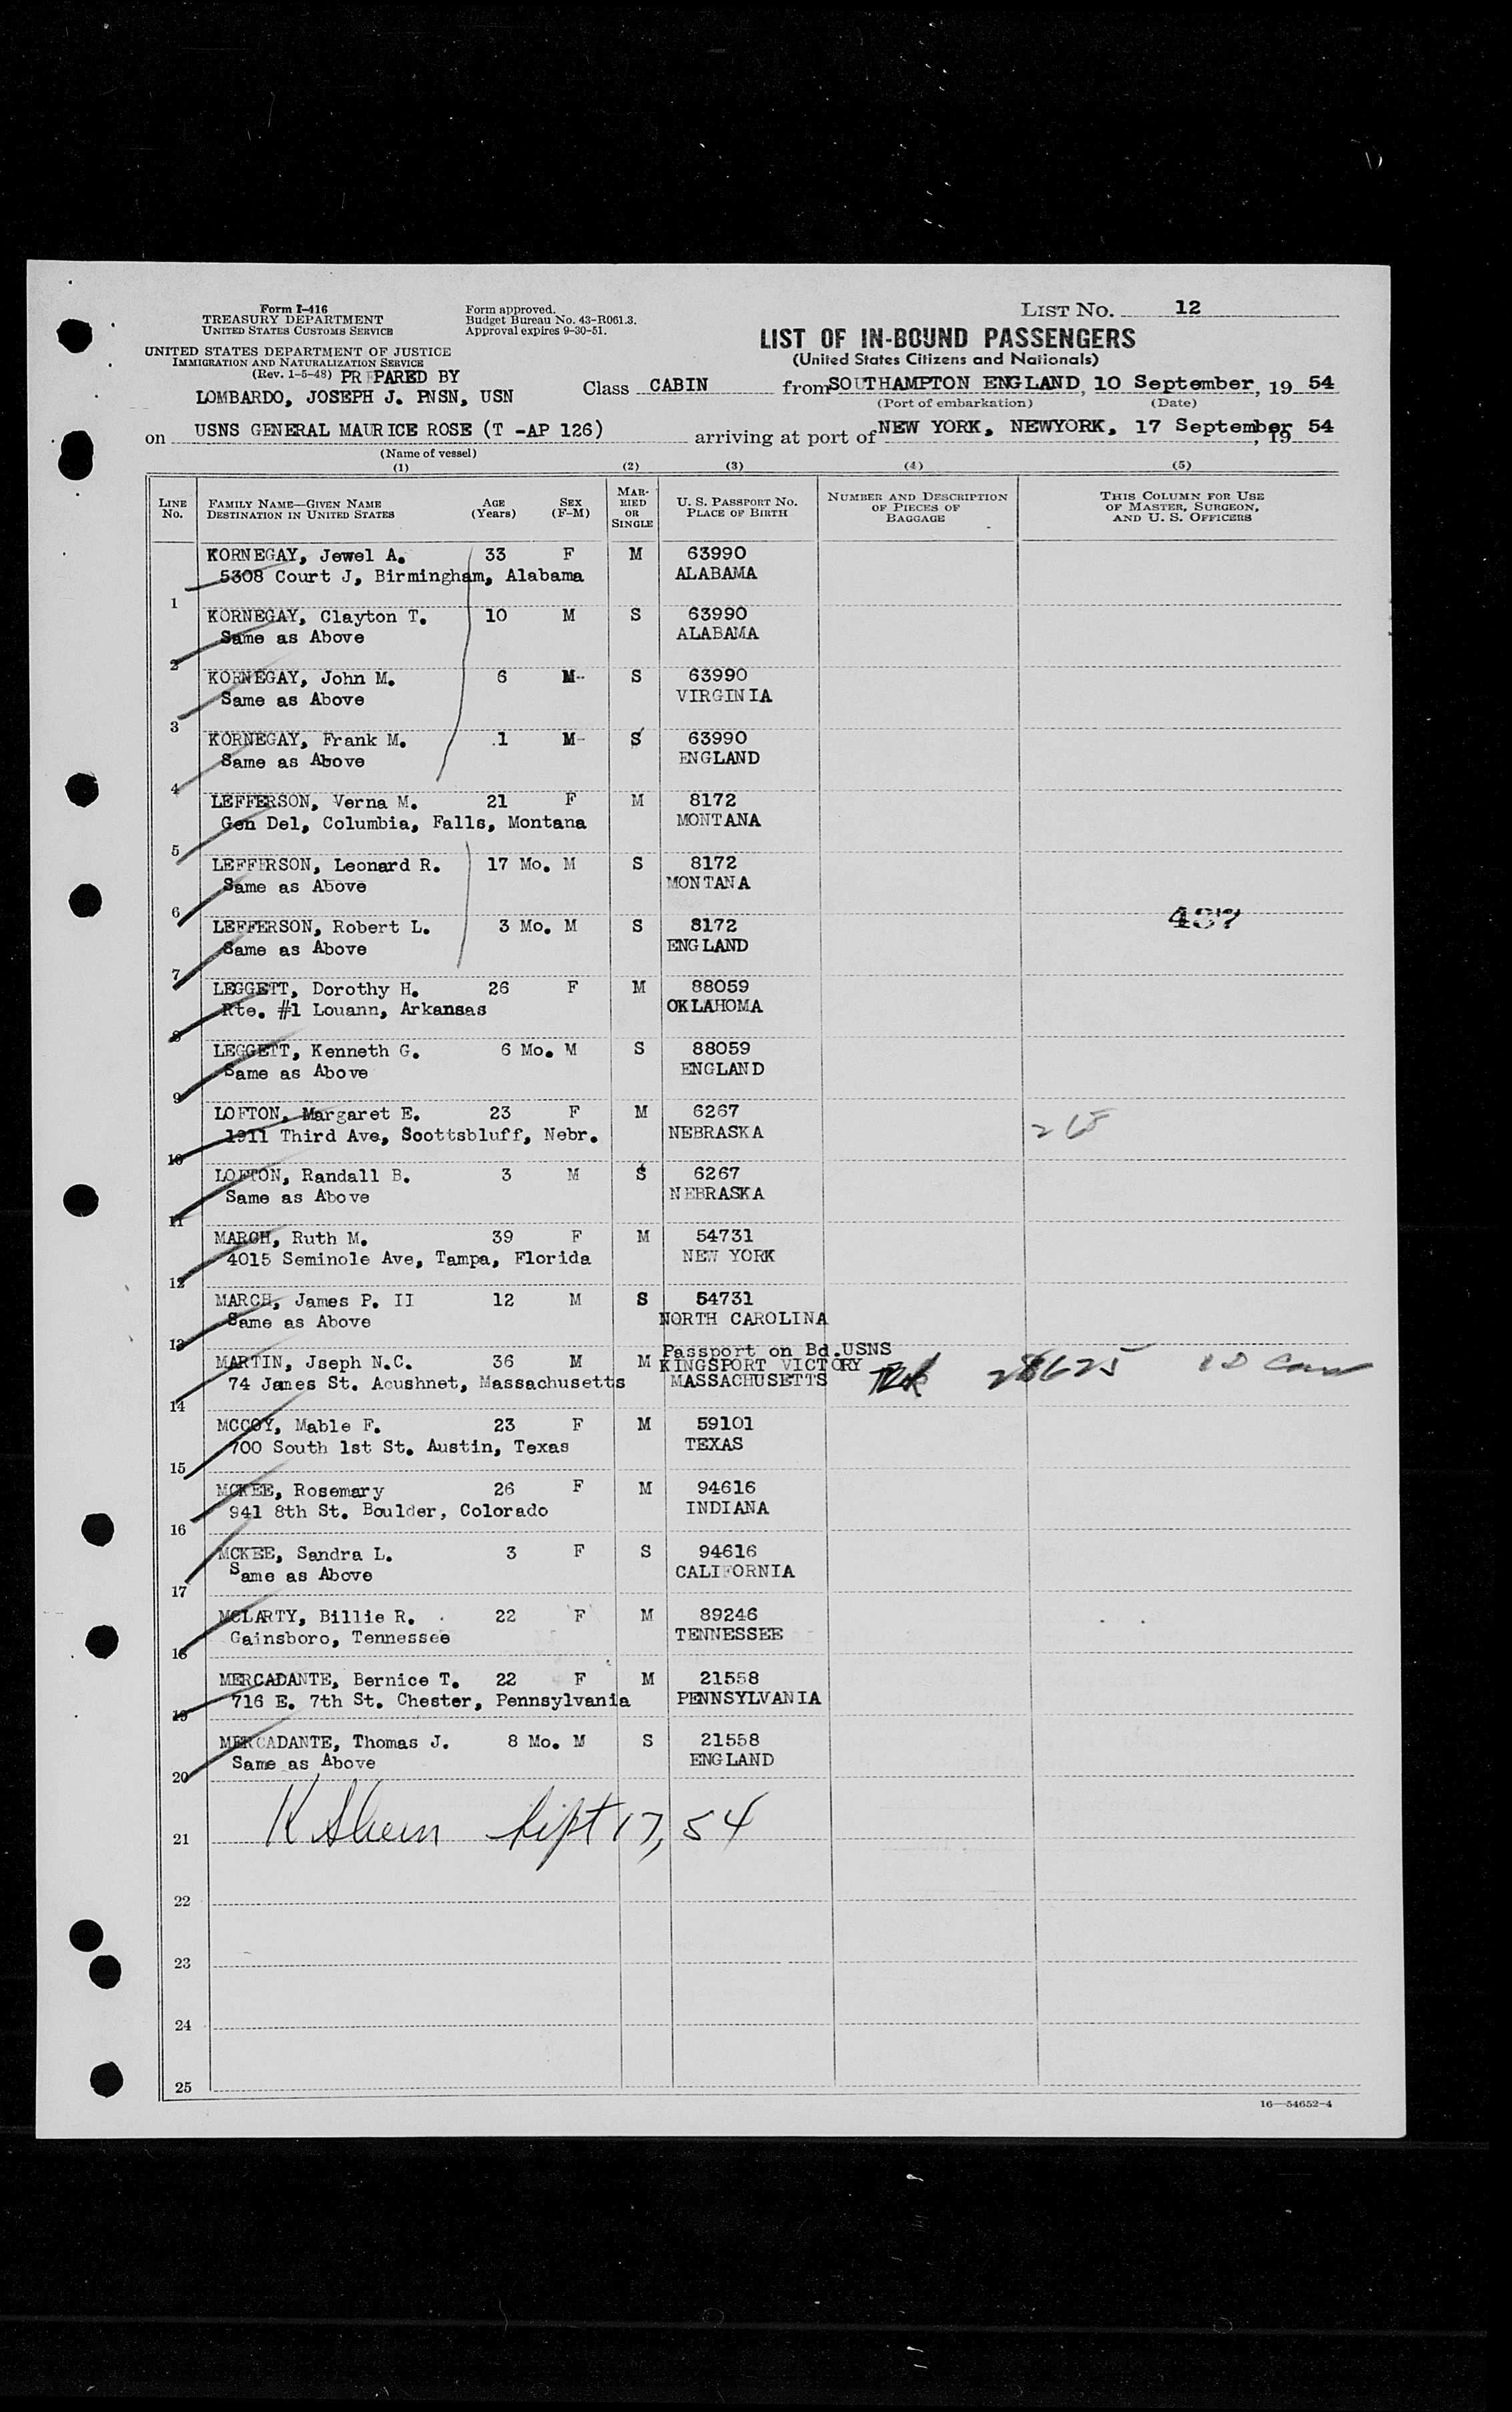 Form I-416
TREASURY DEPARTMENT
UNITED STATES CUSTOMS SERVICE
Form approved.
Budget Bureau No. 43-R061.3.
Approval expires 9-30-51.
LIST NO. 12
LIST OF IN-BOUND PASSENGERS
(United States Citizens and Nationals)
UNITED STATES DEPARTMENT OF JUSTICE
IMMIGRATION AND NATURALIZATION SERVICE
(Rev. 1-5-48) PREPARED BY
LOMBARDO, JOSEPH J. PNSN, USN
Class CABIN from SOUTHAMPTON ENGLAND, 10 September, 19 54
(Port of embarkation) (Date)
on USNS GENERAL MAURICE ROSE (T -AP 126) arriving at port of NEW YORK, NEWYORK, 17 September, 19 54
(Name of vessel)
(1) (2) (3) (4) (5)
LINE No. FAMILY NAME—GIVEN NAME DESTINATION IN UNITED STATES AGE (Years) SEX (F-M) MARRIED OR SINGLE U. S. PASSPORT NO. PLACE OF BIRTH NUMBER AND DESCRIPTION OF PIECES OF BAGGAGE THIS COLUMN FOR USE OF MASTER, SURGEON, AND U. S. OFFICERS
KORNEGAY, Jewel A. 33 F M 63990
5308 Court J, Birmingham, Alabama ALABAMA
1
KORNEGAY, Clayton T. 10 M S 63990
Same as Above ALABAMA
2
KORNEGAY, John M. 6 M S 63990
Same as Above VIRGINIA
3
KORNEGAY, Frank M. 1 M S 63990
Same as Above ENGLAND
4
LEFFERSON, Verna M. 21 F M 8172
Gen Del, Columbia, Falls, Montana MONTANA
5
LEFFERSON, Leonard R. 17 Mo. M S 8172
Same as Above MONTANA
6
LEFFERSON, Robert L. 3 Mo. M S 8172 437
Same as Above ENGLAND
7
LEGGETT, Dorothy H. 26 F M 88059
Rte. #1 Louann, Arkansas OKLAHOMA
8
LEGGETT, Kenneth G. 6 Mo. M S 88059
Same as Above ENGLAND
9
LOFTON, Margaret E. 23 F M 6267
1911 Third Ave, Scottsbluff, Nebr. NEBRASKA
10
LOFTON, Randall B. 3 M S 6267
Same as Above NEBRASKA
11
MARCH, Ruth M. 39 F M 54731
4015 Seminole Ave, Tampa, Florida NEW YORK
12
MARCH, James P. II 12 M S 54731
Same as Above NORTH CAROLINA
13
Passport on Bd.USNS
MARTIN, Jseph N.C. 36 M M KINGSPORT VICTORY
74 James St. Acushnet, Massachusetts MASSACHUSETTS
14
MCCOY, Mable F. 23 F M 59101
700 South 1st St. Austin, Texas TEXAS
15
MCKEE, Rosemary 26 F M 94616
941 8th St. Boulder, Colorado INDIANA
16
MCKEE, Sandra L. 3 F S 94616
Same as Above CALIFORNIA
17
MCLARTY, Billie R. 22 F M 89246
Gainsboro, Tennessee TENNESSEE
18
MERCADANTE, Bernice T. 22 F M 21558
716 E. 7th St. Chester, Pennsylvania PENNSYLVANIA
19
MERCADANTE, Thomas J. 8 Mo. M S 21558
Same as Above ENGLAND
20
Sept 17, 54
21
22
23
24
25
16—54652-4